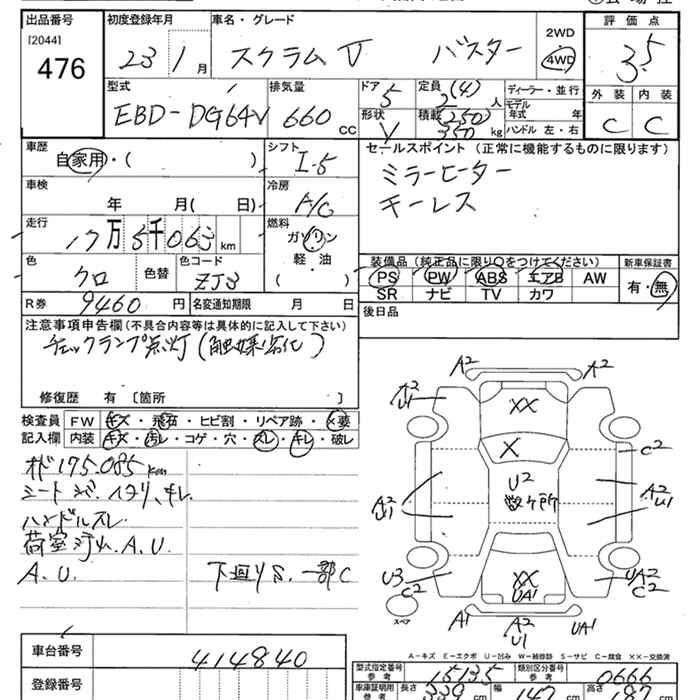 出品番号 初度登録年月 車名・グレード 評価点
[2044] 2WD
476 23 1月 スクラムV バスター 4WD 3.5
型式 排気量 ドア 定員 ディーラー・並行 外装 内装
EBD-DG64V 660cc 5 2(4)人 モデル年式 年
形状 積載 ハンドル 左・右 C C
V (250) 350 kg
車歴 シフト セールスポイント (正常に機能するものに限ります)
自家用・( ) I-5 ミラーヒーター
車検 冷房 キーレス
年 月( 日) A/C
走行 燃料
17万5千063km ガソリン
軽・油
( )
装備品 (純正品に限り○をつけてください) 新車保証書
色 色替 色コード PS PW ABS エアB AW 有・無
クロ ZJ3 SR ナビ TV カワ
R券 9460円 名変通知期限 月 日 後日品
注意事項申告欄(不具合内容等は具体的に記入して下さい)
チェックランプ点灯(触媒劣化)
修復歴 有 〔箇所 〕
検査員 FW キズ・飛石・ヒビ割・リペア跡・×要
記入欄 内装 キズ・汚レ・コゲ・穴・スレ・キレ・破レ
175.085km
ハンドルスレ
荷室汚レ.A.U.
A.U. 下廻りS.一部C
A2 A2
A2 U1 XX
X C2
U2
数ヶ所
A2 U1 A2 U1
U3 C2 XX UA1 UA2 C2
スペア A1 A2 U1 UA1
A-キズ E-エクボ U-凹み W-補修跡 S-サビ C-腐食 XX-交換済
車台番号 414840
型式指定番号 参考 15135 類別区分番号 参考 0666
登録番号
車庫証明用 参考 長さ 339cm 幅 147cm 高さ 187cm